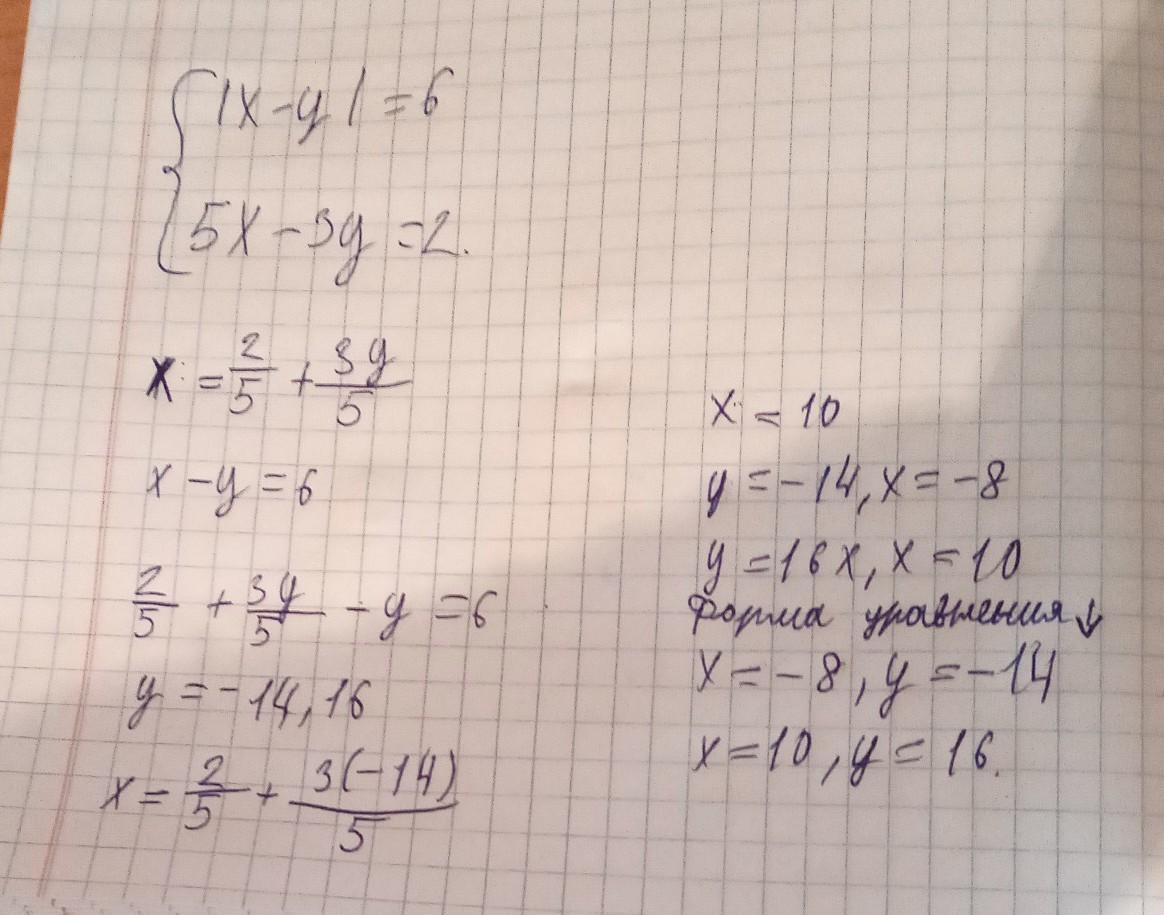 |x-y|=6
5x-3y=2.
x = 2/5 + 3y/5
x-y=6
2/5 + 3y/5 - y = 6
y = -14, 16
x = 2/5 + 3(-14)/5
x = 10
y = -14, x = -8
y = 16x, x = 10
Форма уравнения ↓
x = -8, y = -14
x = 10, y = 16.